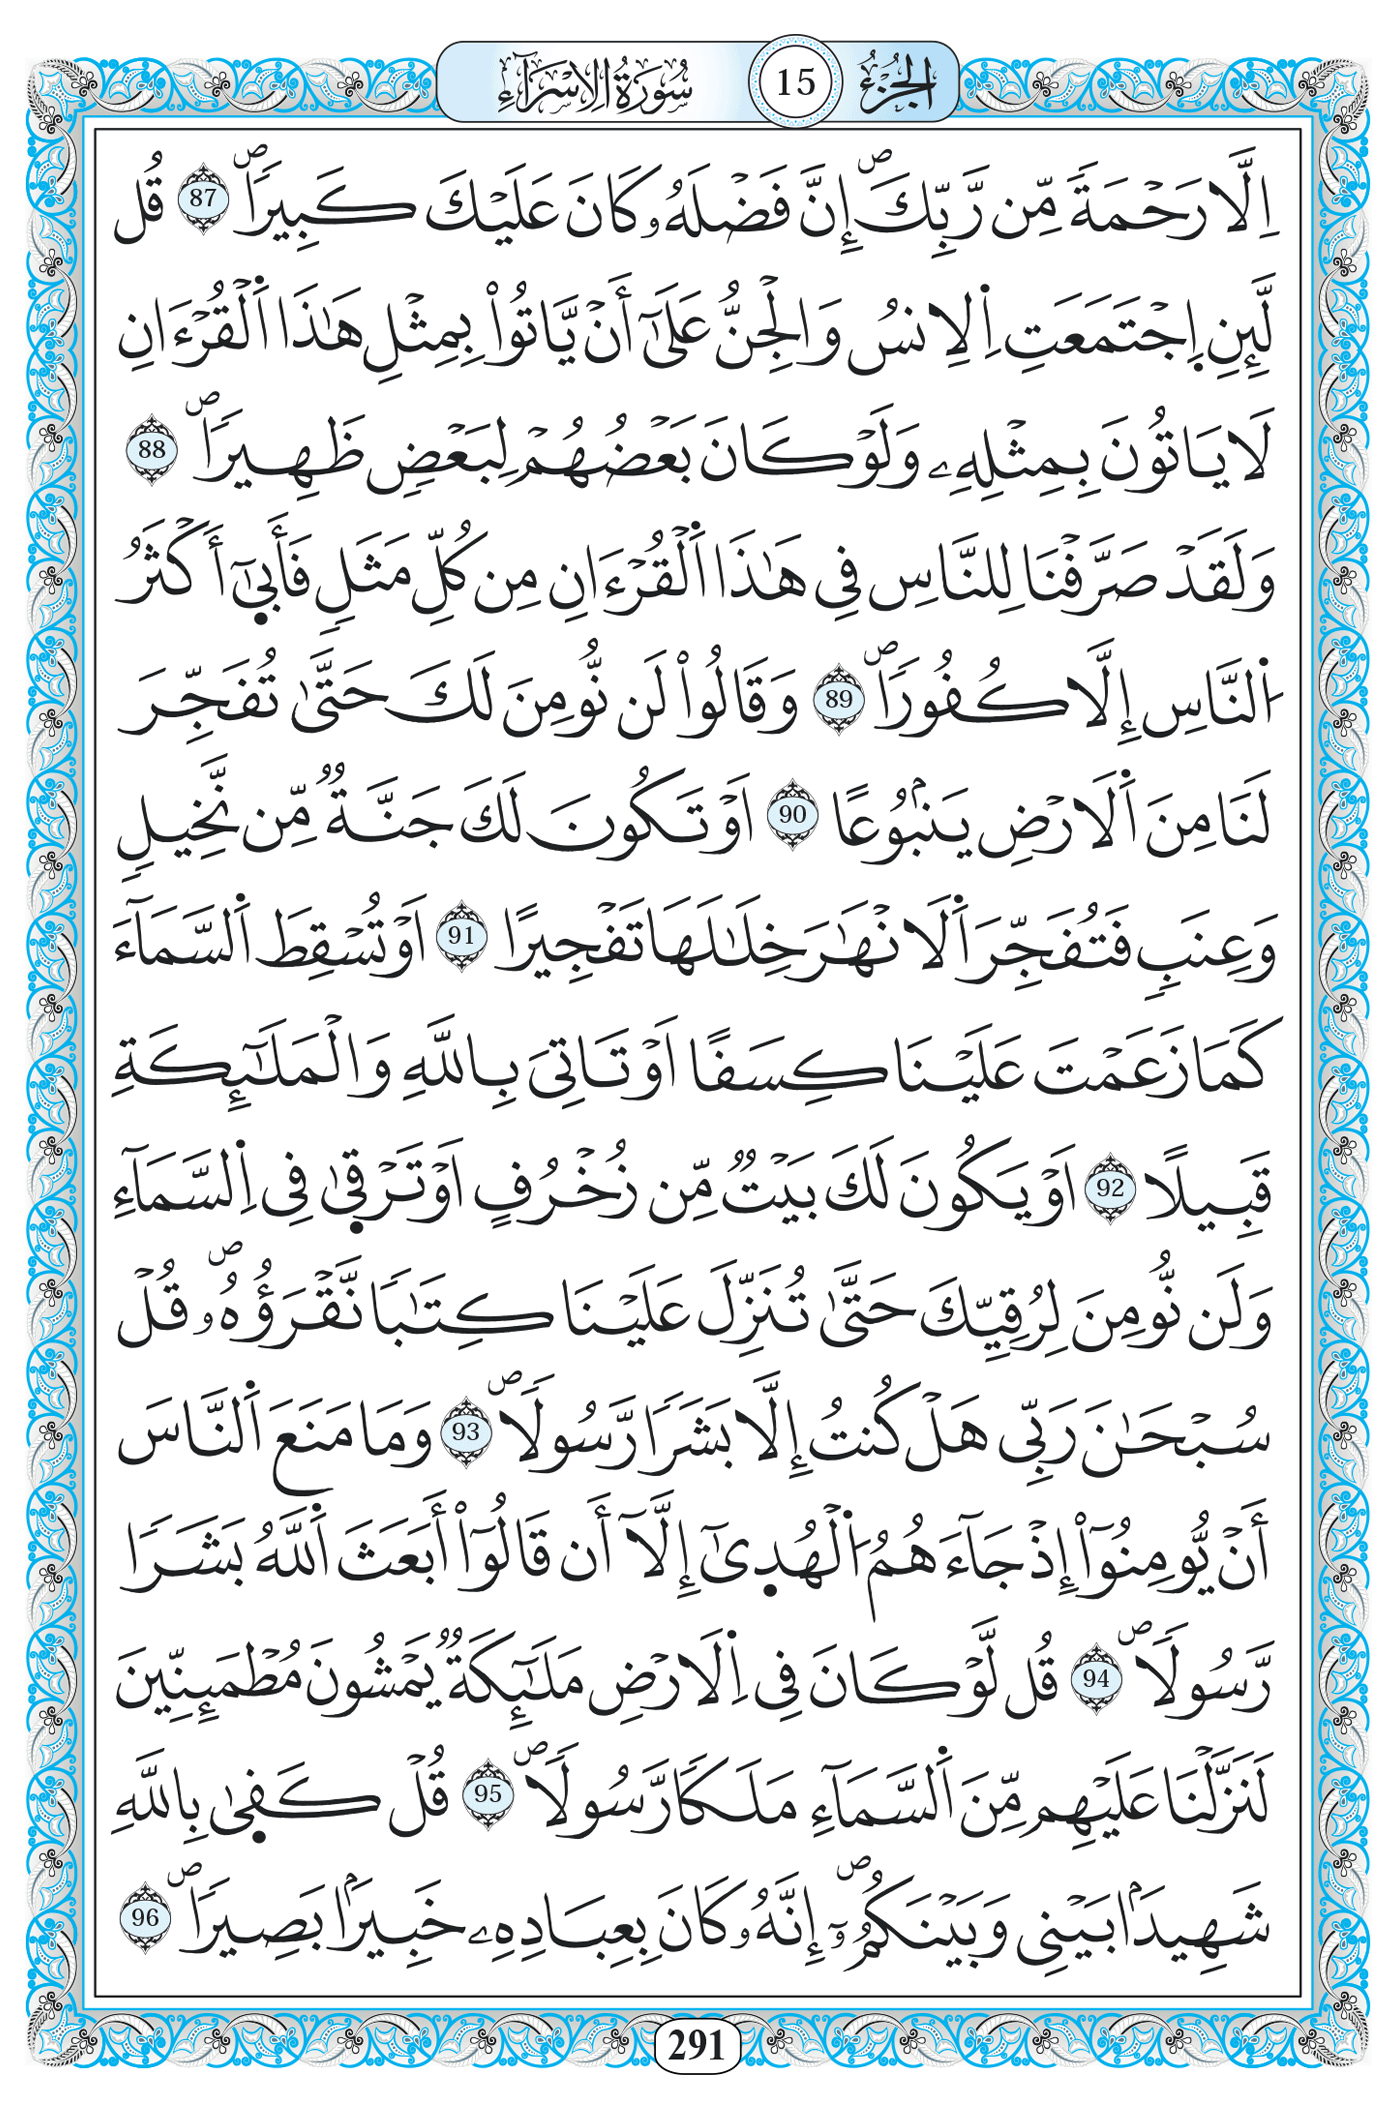 الجزء 15 سورة الإسراء
اِلَّا رَحْمَةً مِّن رَّبِّكَۖ إِنَّ فَضْلَهُۥ كَانَ عَلَيْكَ كَبِيراًۖ 87 قُل
لَّئِنِ اِجْتَمَعَتِ اِ۬لِانسُ وَالْجِنُّ عَلَىٰٓ أَنْ يَّاتُواْ بِمِثْلِ هَٰذَا اَ۬لْقُرْءَانِ
لَا يَاتُونَ بِمِثْلِهِۦ وَلَوْ كَانَ بَعْضُهُمْ لِبَعْضٖ ظَهِيراًۖ 88
وَلَقَدْ صَرَّفْنَا لِلنَّاسِ فِى هَٰذَا اَ۬لْقُرْءَانِ مِن كُلِّ مَثَلٖ فَأَبىٰٓ أَكْثَرُ
اُ۬لنَّاسِ إِلَّا كُفُوراًۖ 89 وَقَالُواْ لَن نُّومِنَ لَكَ حَتَّىٰ تُفَجِّرَ
لَنَا مِنَ اَ۬لَارْضِ يَنۢبُوعًا 90 اَوْ تَكُونَ لَكَ جَنَّةٞ مِّن نَّخِيلٖ
وَعِنَبٖ فَتُفَجِّرَ اَ۬لَانْهَٰرَ خِلَٰلَهَا تَفْجِيرًا 91 اَوْ تُسْقِطَ اَ۬لسَّمَآءَ
كَمَا زَعَمْتَ عَلَيْنَا كِسَفًا اَوْ تَاتِىَ بِاللَّهِ وَالْمَلَٰٓئِكَةِ
قَبِيلًا 92 اَوْ يَكُونَ لَكَ بَيْتٞ مِّن زُخْرُفٍ اَوْ تَرْقىٰ فِى اِ۬لسَّمَآءِ
وَلَن نُّومِنَ لِرُقِيِّكَ حَتَّىٰ تُنَزِّلَ عَلَيْنَا كِتَٰباً نَّقْرَؤُهُۥۖ قُلْ
سُبْحَٰنَ رَبِّى هَلْ كُنتُ إِلَّا بَشَراً رَّسُولاًۖ 93 وَمَا مَنَعَ اَ۬لنَّاسَ
أَنْ يُّومِنُوٓاْ إِذْ جَآءَهُمُ اُ۬لْهُدىٰٓ إِلَّآ أَن قَالُوٓاْ أَبَعَثَ اَ۬للَّهُ بَشَراً
رَّسُولاًۖ 94 قُل لَّوْ كَانَ فِى اِ۬لَارْضِ مَلَٰٓئِكَةٞ يَمْشُونَ مُطْمَئِنِّينَ
لَنَزَّلْنَا عَلَيْهِم مِّنَ اَ۬لسَّمَآءِ مَلَكاً رَّسُولاًۖ 95 قُلْ كَفىٰ بِاللَّهِ
شَهِيداَۢ بَيْنِى وَبَيْنَكُمُۥٓۖ إِنَّهُۥ كَانَ بِعِبَادِهِۦ خَبِيراَۢ بَصِيراًۖ 96
291